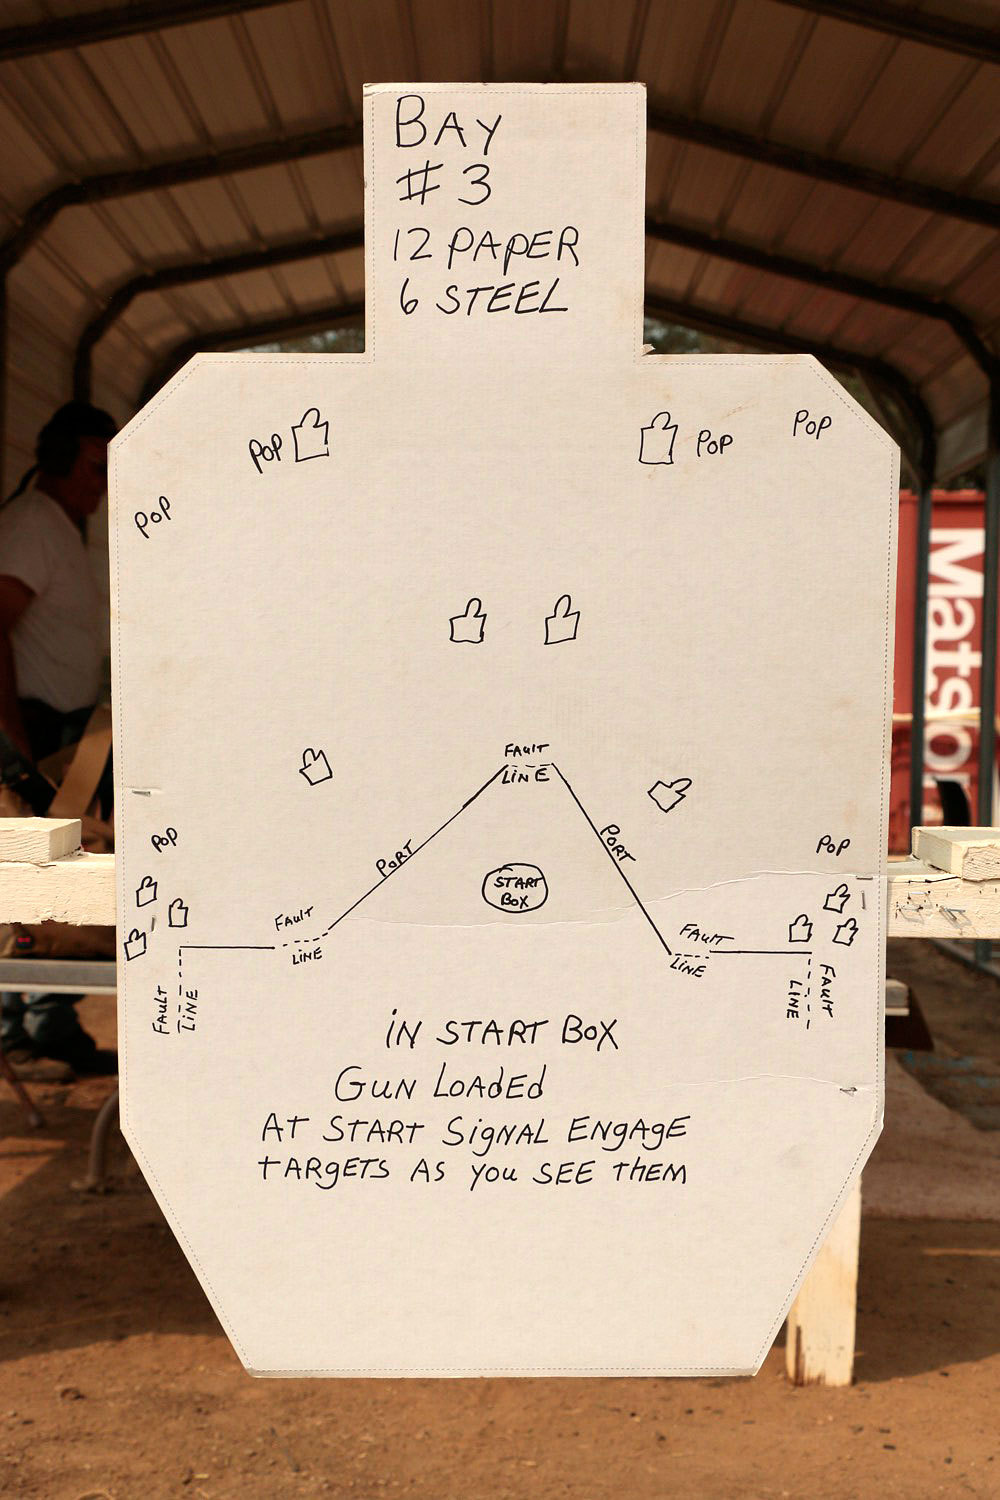 BAY
# 3
12 PAPER
6 STEEL
POP
POP
POP
POP
FAULT
LINE
PORT
PORT
START
BOX
POP
POP
FAULT
LINE
FAULT
LINE
FAULT
LINE
FAULT
LINE
IN START BOX
GUN LOADED
AT START SIGNAL ENGAGE
TARGETS AS YOU SEE THEM
Matson